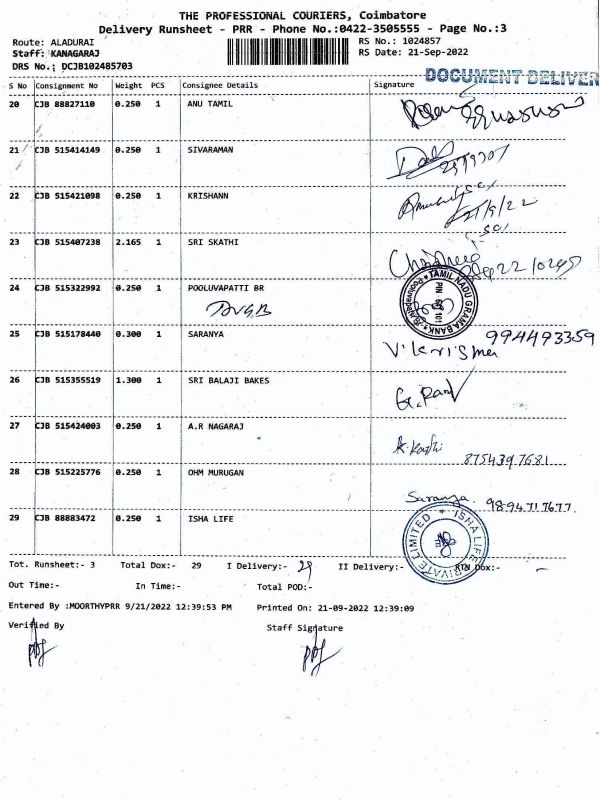 THE PROFESSIONAL COURIERS, Coimbatore
Delivery Runsheet - PRR - Phone No.:0422-3505555 - Page No.:3
Route: ALADURAI RS No.: 1024857
Staff: KANAGARAJ RS Date: 21-Sep-2022
DRS No.: DCJB102485703
DOCUMENT DELIVER
S No Consignment No Weight PCS Consignee Details Signature
20 CJB 88827110 0.250 1 ANU TAMIL
21 CJB 515414149 0.250 1 SIVARAMAN
22 CJB 515421098 0.250 1 KRISHANN
23 CJB 515407238 2.165 1 SRI SKATHI
24 CJB 515322992 0.250 1 POOLUVAPATTI BR
TAMIL NADU GRAMA BANK
25 CJB 515178440 0.300 1 SARANYA 994493359
26 CJB 515355519 1.300 1 SRI BALAJI BAKES
27 CJB 515424003 0.250 1 A.R NAGARAJ
8754397681
28 CJB 515225776 0.250 1 OHM MURUGAN
Saranya. 9894717677
29 CJB 88883472 0.250 1 ISHA LIFE
ISHA LIFE PRIVATE LIMITED
Tot. Runsheet:- 3 Total Dox:- 29 I Delivery:- 29 II Delivery:- RTN Dox:-
Out Time:- In Time:- Total POD:-
Entered By :MOORTHYPRR 9/21/2022 12:39:53 PM Printed On: 21-09-2022 12:39:09
Verified By Staff Signature